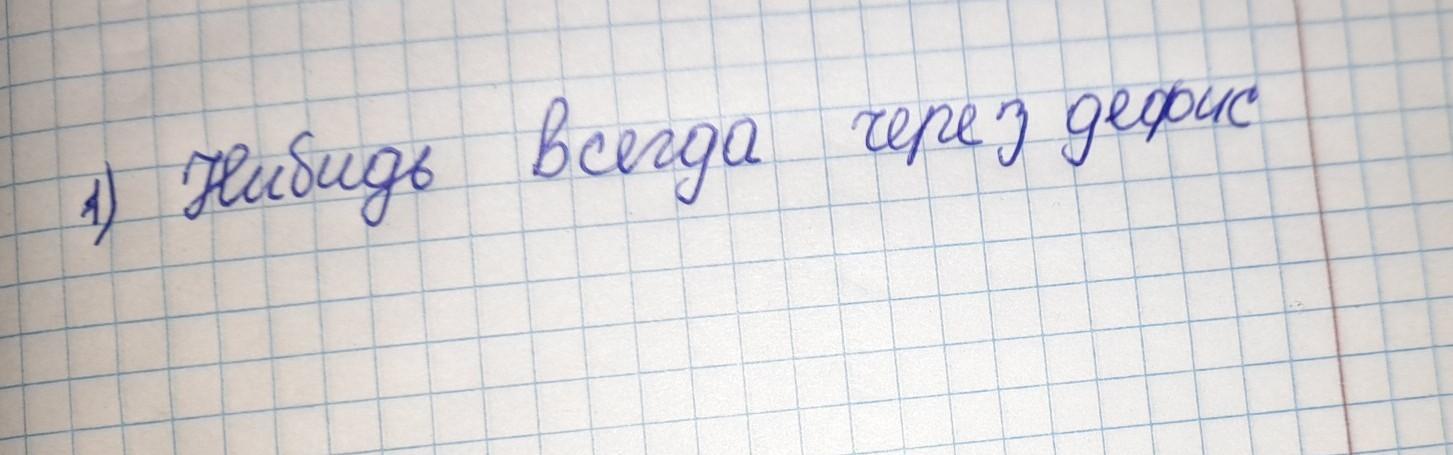 1) Нибидь всегда через дефис